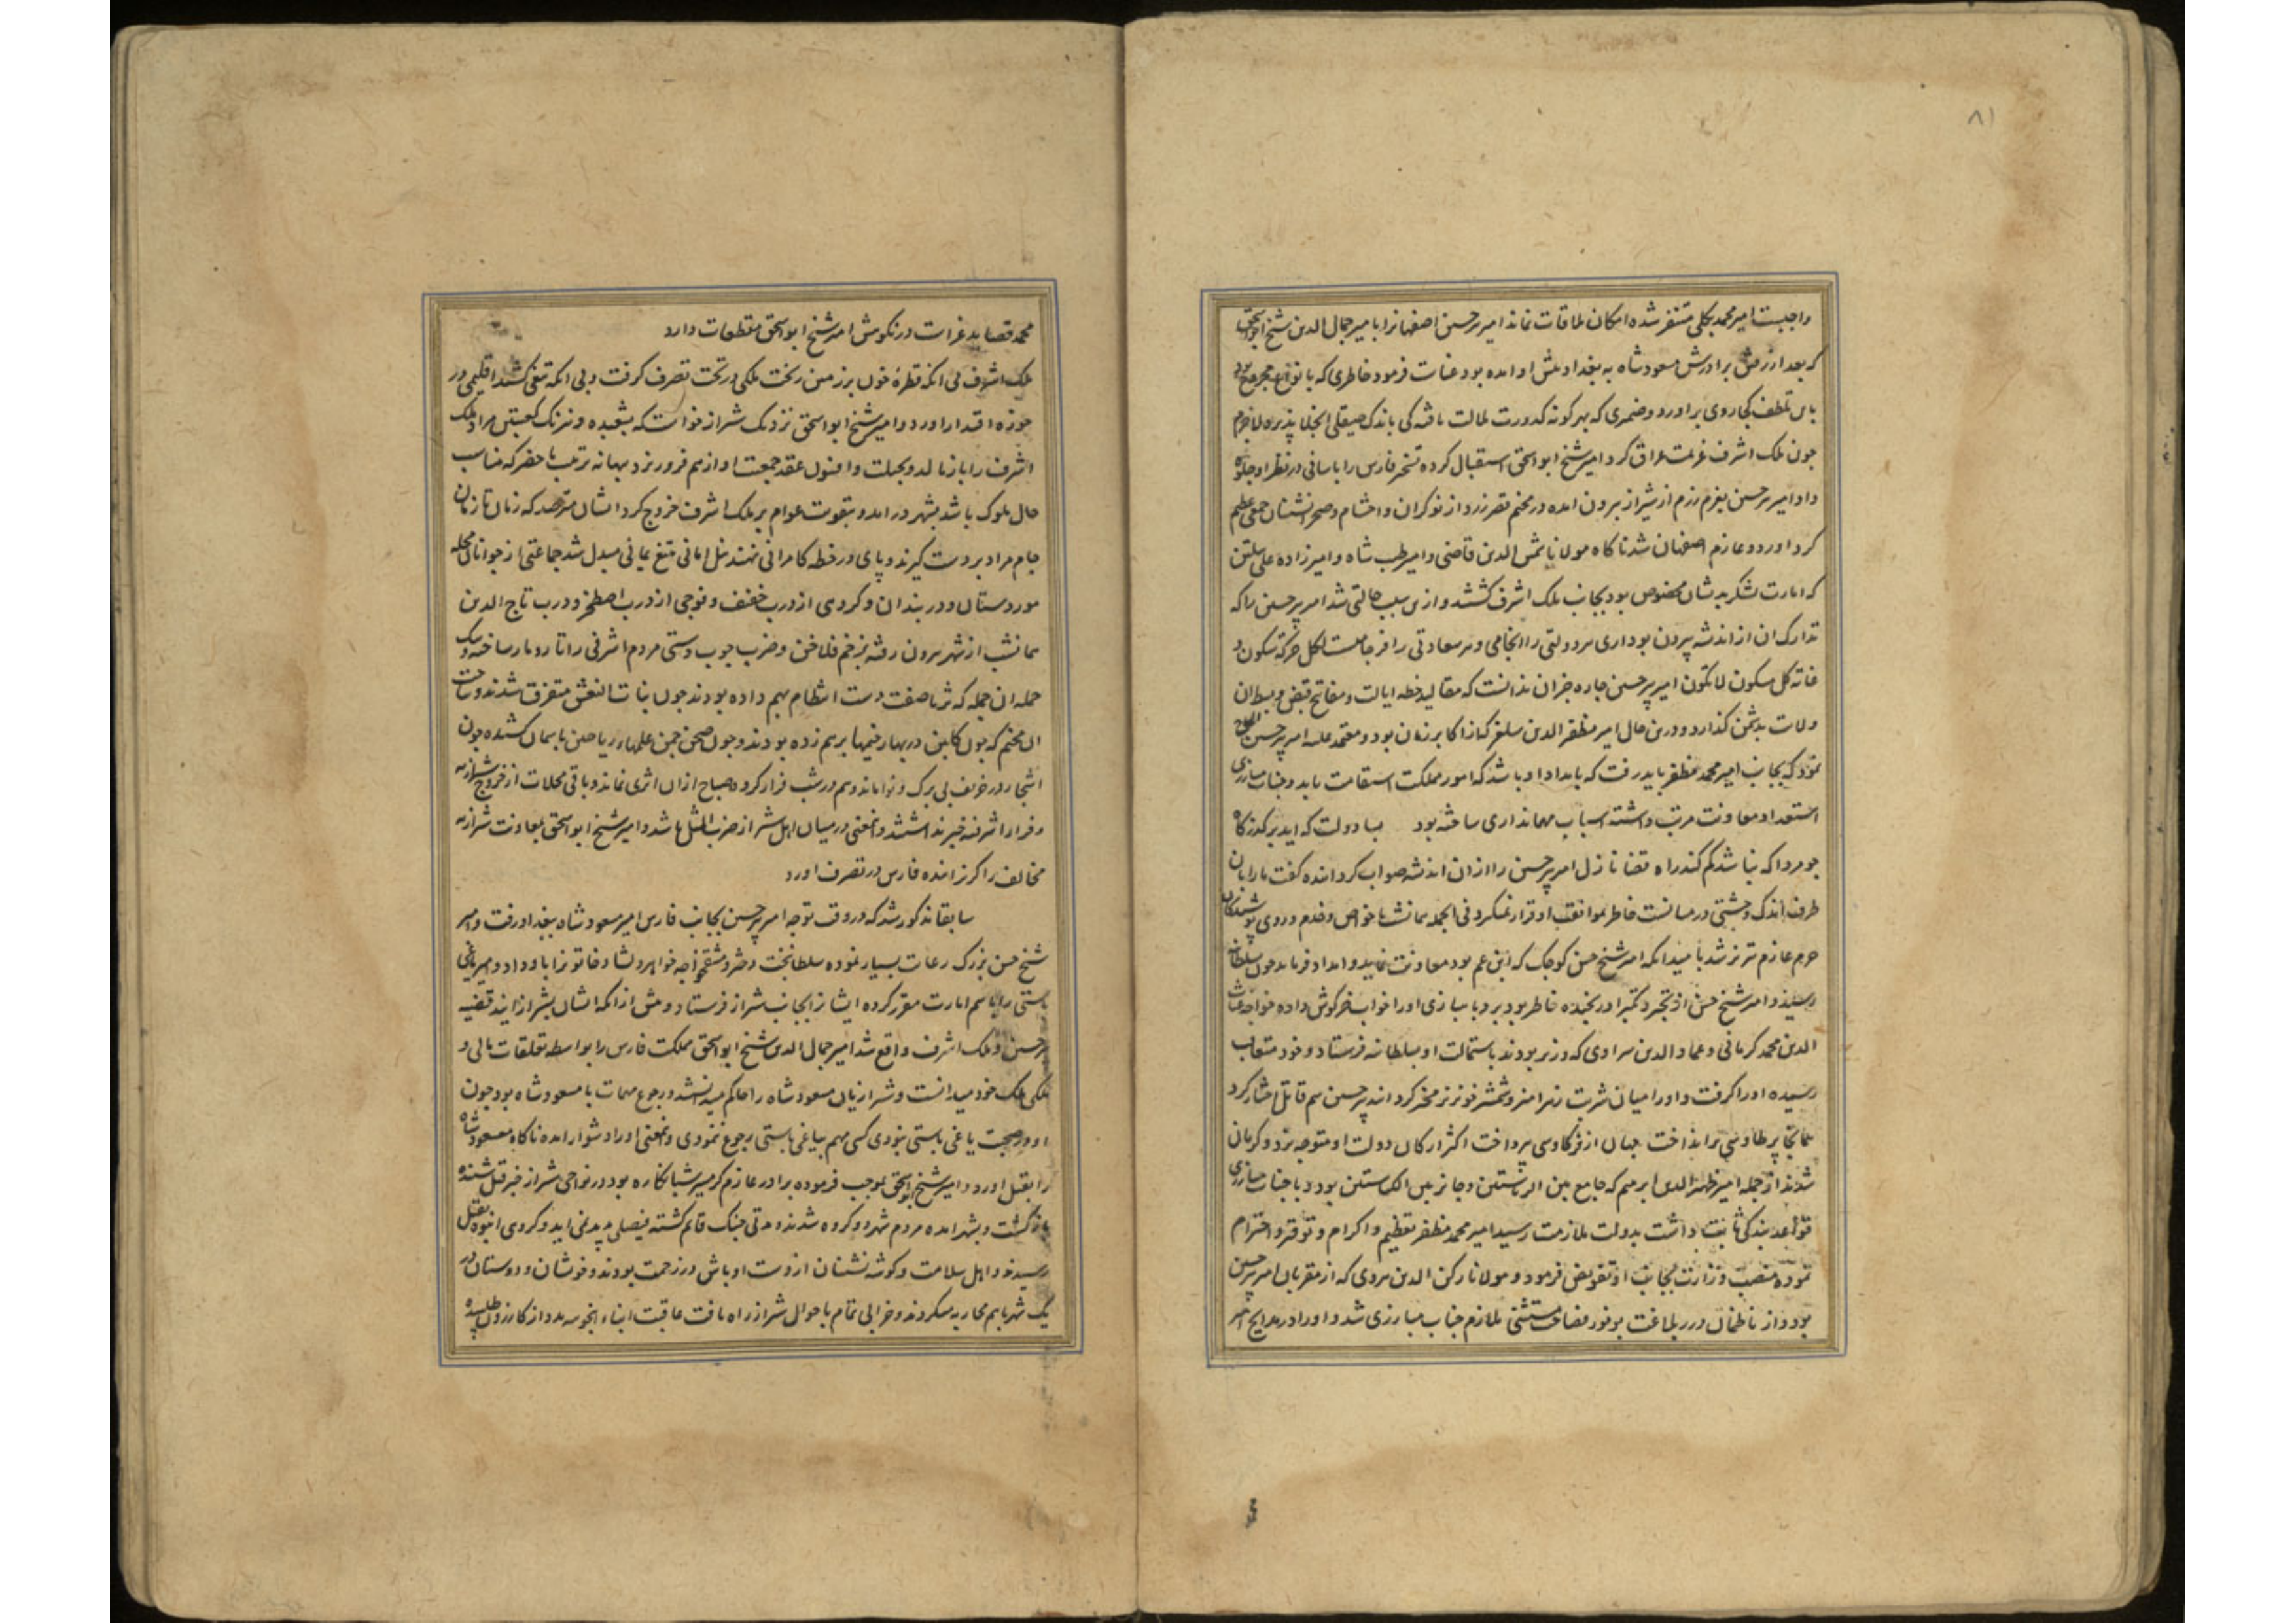 ۸۱
واجبست امیر محمد بکلی متنفر شده امکان ملاقات نماند امیر پیرحسین اصفهانرا بامیر جمال الدین شیخ ابواسحق
که بعد از برادرش مسعود شاه به بغداد پیش او امده بود عنایت فرمود خاطری که بانواع مجروح بود
باین تلطف کجا روی براورد و ضمیری که بهر کونه کدورت ملالت یافته کی باندک صیقلی انجلا پذیرد لاجرم
چون ملک اشرف عزیمت عراق کرد امیر شیخ ابواسحق استقبال کرده تسخیر فارس را باسانی در نظر او جلوه
داد امیر پیرحسین بعزم رزم از شیراز بیرون امده در مخیم قصر زرد از نوکران و احشام و صحرانشینان جمعی عظیم
کرد اورد و عازم اصفهان شد ناکاه مولانا شمس الدین قاضی و امیر طیب شاه و امیرزاده علی پیلتن
که امارت لشکر بدیشان مخصوص بود بجانب ملک اشرف کشتند و ازین سبب حالتی شد امیر پیرحسین را که
تدارک ان از اندیشه بیرون بود اری هر دولتی را انجامی و هر سعادتی را فرجامیست لکل حرکة سکون و
غایة کل سکون لا تکون امیر پیرحسین چاره جز ان ندانست که مقالید خطه ایالت و مفاتیح قبض و بسط ان
ولایت بدشمن کذارد و درین حال امیر مظفر الدین سلغر که از اکابر زمان بود و معتمد علیه امیر پیرحسین
نمود که بجانب امیر محمد مظفر باید رفت که بامداد او باشد که امور مملکت استقامت یابد و جناب مبارزی
استعداد معاونت مرتب داشته اسباب مهمانداری ساخته بود بسا دولت که اید بر کذرکاه
چو مرد اکه نباشد کم کند راه قضا نازل امیر پیرحسین را از ان اندیشه صواب کردانده کفت ما را بان
طرف اندک وحشتی در میانست خاطر بموافقت او قرار نمیکیرد فی الجمله بمانشب با خواص و خدم و روی پوشیدکان
حرم عازم تبریز شد بامید انکه امیر شیخ حسن کوچک که ابن عم بود معاونت نماید و امداد فرماید چون بسلطانیه
رسید و امیر شیخ حسن از تجبر و تکبر او رنجیده خاطر بود برو با بازی او را خواب خرکوش داده خواجه غیاث
الدین محمد کرمانی و عماد الدین سراوی که وزیر بودند باستمالت او بسلطانیه فرستاد و خود متعاقب
رسیده او را کرفت و او را میان شربت زهرامیز و شمشیر خونریز مخیر کردانید پیرحسین سم قاتل اختیار کرد
همانجا پر طاوسی برانداخت جهان از فر کاوسی بپرداخت اکثر ارکان دولت او متوجه یزد و کرمان
شدند از جمله امیر ظهیر الدین ابرهیم که جامع بین الریاستین و حائز بین المکرمتین بود و با جناب مبارزی
قواعد بندکی ثابت داشت بدولت ملازمت رسید امیر محمد مظفر تعظیم و اکرام و توقیر و احترام
نموده منصب وزارت بجانب او تفویض فرمود و مولانا رکن الدین هروی که از مقربان امیر پیرحسین
بود و از ناظمان درر بلاغت بوفور فضایل مستثنی ملازم جناب مبارزی شد و او را در مدایح امیر
محمد قصاید غراست در نکوهش امیر شیخ ابواسحق مقطعات دارد
ملک اشرف بی انکه قطرۀ خون بر زمین ریخت ملکی در تحت تصرف کرفت و بی انکه تیغی کشد اقلیمی در
حوزه اقتدار اورد و امیر شیخ ابواسحق نزدیک شیراز خواست که بشعبده و نیرنک کعبتین مراد ملک
اشرف را باز مالد و بحیلت و افسون عقد جمعیت او از هم فرو ریزد ببهانه ترتیب ماحضر که مناسب
حال ملوک باشد بشهر در امد و بتقویت عوام بر ملک اشرف خروج کرد ایشان مترصد که زمان تا زمان
جام مراد بر دست کیرند و پای در خطه کامرانی نهند نیل امانی بتیغ یمانی مبدل شد جماعتی از جوانان محله
موردستان و در بندان و کروهی از درب خفیف و فوجی از درب اصطخر و درب تاج الدین
بمانشب از شهر بیرون رفته بزخم فلاخن و ضرب چوب دستی مردم اشرفی را تار و مار ساخته و بیک
حمله ان جمله که ثریا صفت دست انتظام بهم داده بودند چون بنات النعش متفرق شدند و ساحت
ان مخیم که چون کلبن در بهار خیمها بر هم زده بودند و چون صحن چمن علمها ریاحین باسمان کشیده چون
اشجار در خریف بی برک و نوا ماند و هم در شب فرار کرد و صباح از ان اثری نماند و باقی محلات از خروج شیرازیه
و فرار اشرفیه خبر نداشتند و این معنی در میان اهل شیراز ضرب المثل ها شد و امیر شیخ ابواسحق بمعاونت شیرازیه
مخالف را کریزانده فارس در تصرف اورد
سابقا مذکور شد که در وقت توجه امیر پیرحسین بجانب فارس امیر مسعود شاه ببغداد رفت و امیر
شیخ حسن بزرک رعایت بسیار نموده سلطانبخت دختر دمشق خواجه خواهر دلشاد خاتونرا باو داد و امیر یاغی
باستی را باسم امارت مقرر کرده ایشانرا بجانب شیراز فرستاد و پیش از انکه ایشان بشیراز ایند قضیه
پیرحسین و ملک اشرف واقع شد امیر جمال الدین شیخ ابواسحق مملکت فارس را بواسطه تعلقات مالی و
ملکی ملک خود میدانست و شیرازیان مسعود شاه را حاکم میدانستند و رجوع مهمات با مسعود شاه بود چون
او در صحبت یاغی باستی بودی کسی مهم بیاغی باستی رجوع ننمودی و این معنی او را دشوار امده ناکاه مسعود شاه
را بقتل اورد و امیر شیخ ابواسحق بموجب فرموده برادر عازم کرمسیر شبانکاره بود در نواحی شیراز خبر قتل شنیده
بازکشت و بشهر امده مردم شهر دو کروه شدند و مدتی جنک قائم کشته فیصلی پدید نمی اید و کروهی انبوه بقتل
رسیدند و اهل سلامت و کوشه نشینان از دست اوباش در زحمت بودند و خویشان و دوستان در
یک شهر باهم محاربه میکردند و خرابی تمام باحوال شیراز راه یافت عاقبت ابناء اینجو سه مدد از کازرون طلبیده